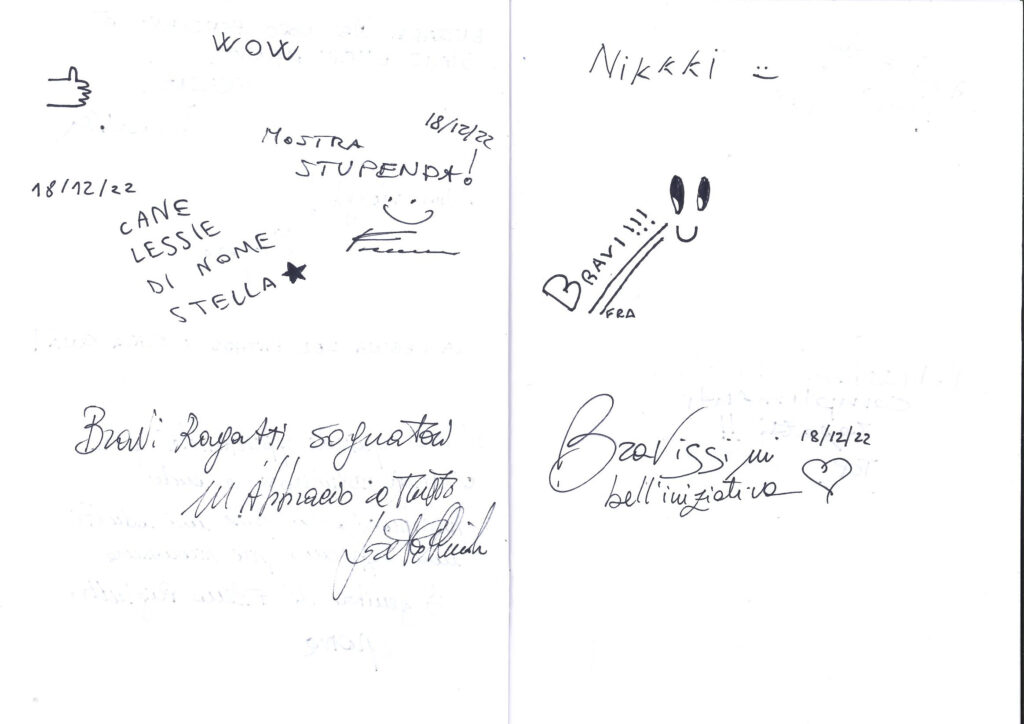 WOW
18/12/22
MOSTRA
STUPENDA!
18/12/22
CANE
LESSIE
DI NOME
STELLA
Bravi Ragazzi sognatori
un Abbraccio a tutti
Nikkki
BRAVI!!!
FRA
Bravissimi
18/12/22
bell'iniziativa